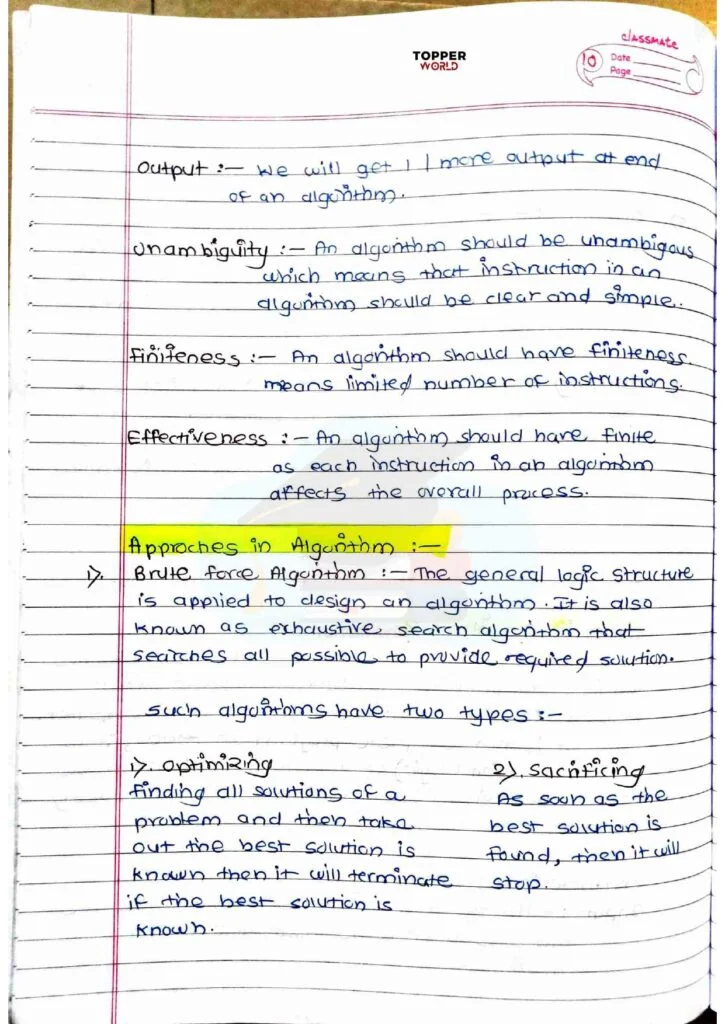 TOPPER
WORLD
classmate
10
Date
Page
Output :- We will get 1 | more output at end
of an algorithm.
Unambiguity :- An algorithm should be unambigous
which means that instruction in an
algorithm should be clear and simple.
Finiteness :- An algorithm should have finiteness.
means limited number of instructions.
Effectiveness :- An algorithm should have finite
as each instruction in an algorithm
affects the overall process.
Approches in Algorithm :-
1). Brute force Algorithm :- The general logic structure
is applied to design an algorithm. It is also
known as exhaustive search algorithm that
searches all possible to provide required solution.
such algorithms have two types :-
1). Optimizing
finding all solutions of a
problem and then take
out the best solution is
known then it will terminate
if the best solution is
known.
2). Sacrificing
As soon as the
best solution is
found, then it will
stop.